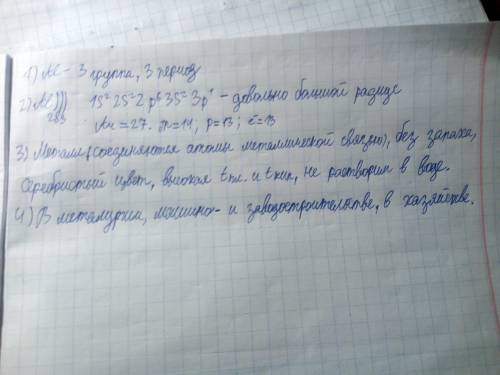 1) Al - 3 группа, 3 период
2) Al))) 1S² 2S² 2p⁶ 3S² 3p¹ - довольно большой радиус
283
Ar = 27. n = 14; p = 13; ē = 13
3) Металл (соединяются атомы металлической связью), без запаха,
Серебристый цвет, высокая t пл. и t кип, не растворим в воде.
4.) В металургиа, машино- и заводостроительстве, в хазяйстве.